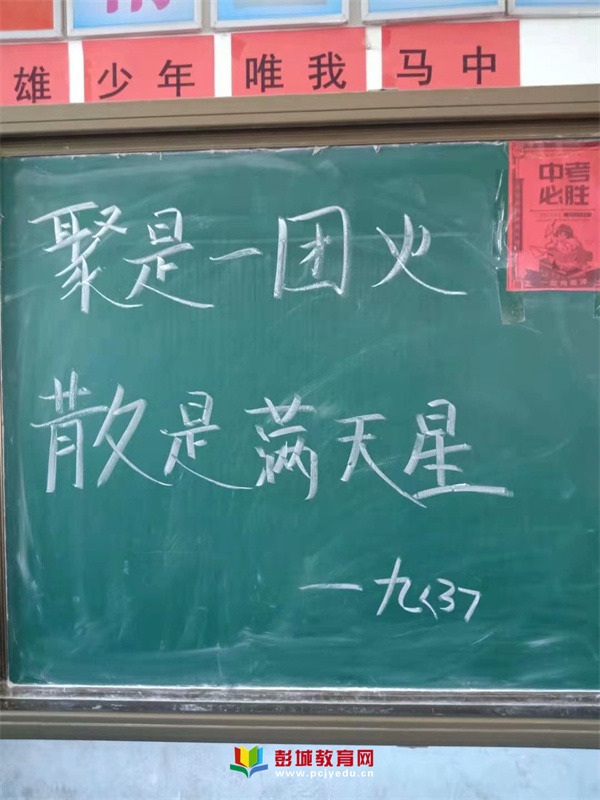 雄 少年 唯我 马中
中考
必胜
聚是一团火
散是满天星
一九<3>
彭城教育网
www.pcjyedu.cn